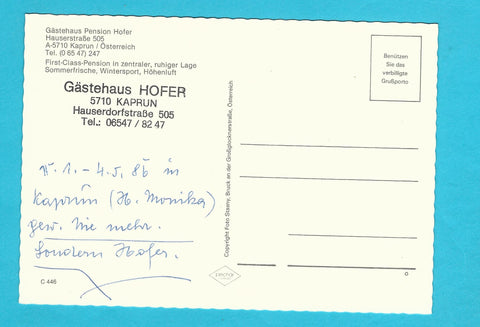 Gästehaus Pension Hofer
Hauserstraße 505
A-5710 Kaprun / Österreich
Tel. (0 65 47) 247
First-Class-Pension in zentraler, ruhiger Lage
Sommerfrische, Wintersport, Höhenluft
Gästehaus HOFER
5710 KAPRUN
Hauserdorfstraße 505
Tel.: 06547 / 82 47
1. - 4.5. 86 in
Kaprun (H. Monika)
gew. Nie mehr.
Sondern Hofer.
C 446
Copyright Foto Stawny, Bruck an der Großglocknerstraße, Österreich
Benützen
Sie das
verbilligte
Grußporto